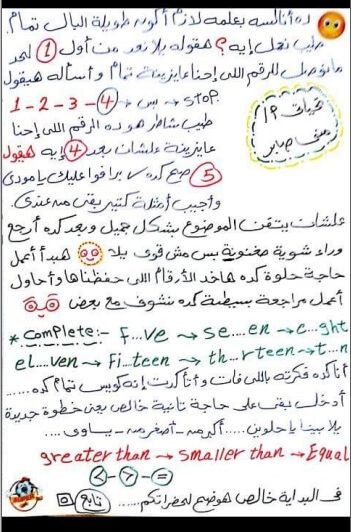 ده أنا لسه بعلمه لازم أكون طويلة البال تمام
طيب نعمل إيه؟ هقوله يلا نعد من أول 1 لحد
ما نوصل للرقم اللى إحنا عايزينه تمام وأسأله هيقول
1 - 2 - 3 - 4 → بس → stop
طيب شاطر هو ده الرقم اللى إحنا
عايزينه علشان بعد 4 إيه هيقول
5 صح كده ✓ برافو عليك يا مودى
وأجيب أمثلة كتير يبقى من عندى
تحيات / P
منى صابر
علشان يتقن الموضوع بشكل جميل وبعد كده أرجع
وراء شوية صغنونة بس مش قوى يلا هبدأ أعمل
حاجة حلوة كده هاخد الأرقام اللى حفظناها وأحاول
أعمل مراجعة بسيطة كده نشوف مع بعض
* complete:- f...ve → se....en → e...ght
el....ven → fi..teen → th...rteen → t...n
أنا كده فكرته باللى فات وأتأكدت إنه كويس تمام كده ......
أدخل بقى على حاجة تانية خالص يعنى خطوة جديدة
يلا بينا يا حلوين ..... أكبر من - أصغر من - يساوى ....
greater than → smaller than → Equal
< - > - =
فى البداية خالص هوضح لحضراتكم ...... تابع 5